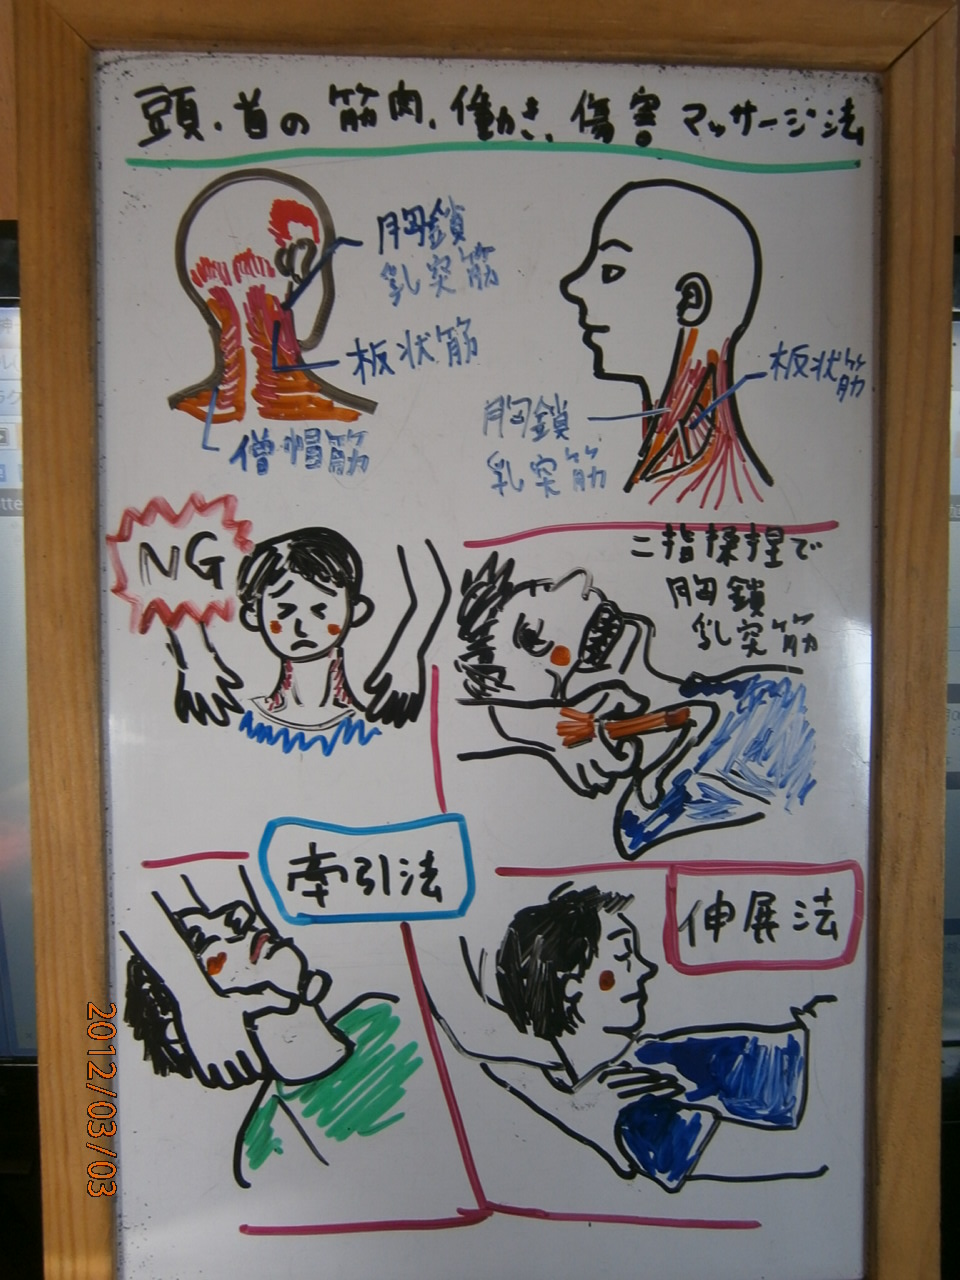 頭・首の筋肉、働き、傷害マッサージ法
胸鎖
乳突筋
板状筋
僧帽筋
板状筋
胸鎖
乳突筋
NG
二指揉捏で
胸鎖
乳突筋
牽引法
伸展法
2012/03/03